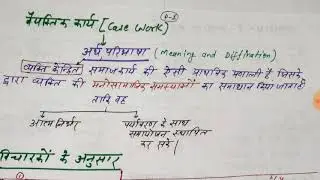 वैयक्तिक कार्य [Case Work]
अर्थ परिभाषा (Meaning and Diffination)
व्यक्ति केन्द्रित समाजकार्य की ऐसी प्राथमिक प्रणाली है जिसके
द्वारा व्यक्ति की मनोसामाजिक समस्याओं का समाधान किया जाता है
ताकि वह
आत्म निर्भर
पर्यावरण के साथ
समायोजन स्थापित
कर सके।
विचारकों के अनुसार